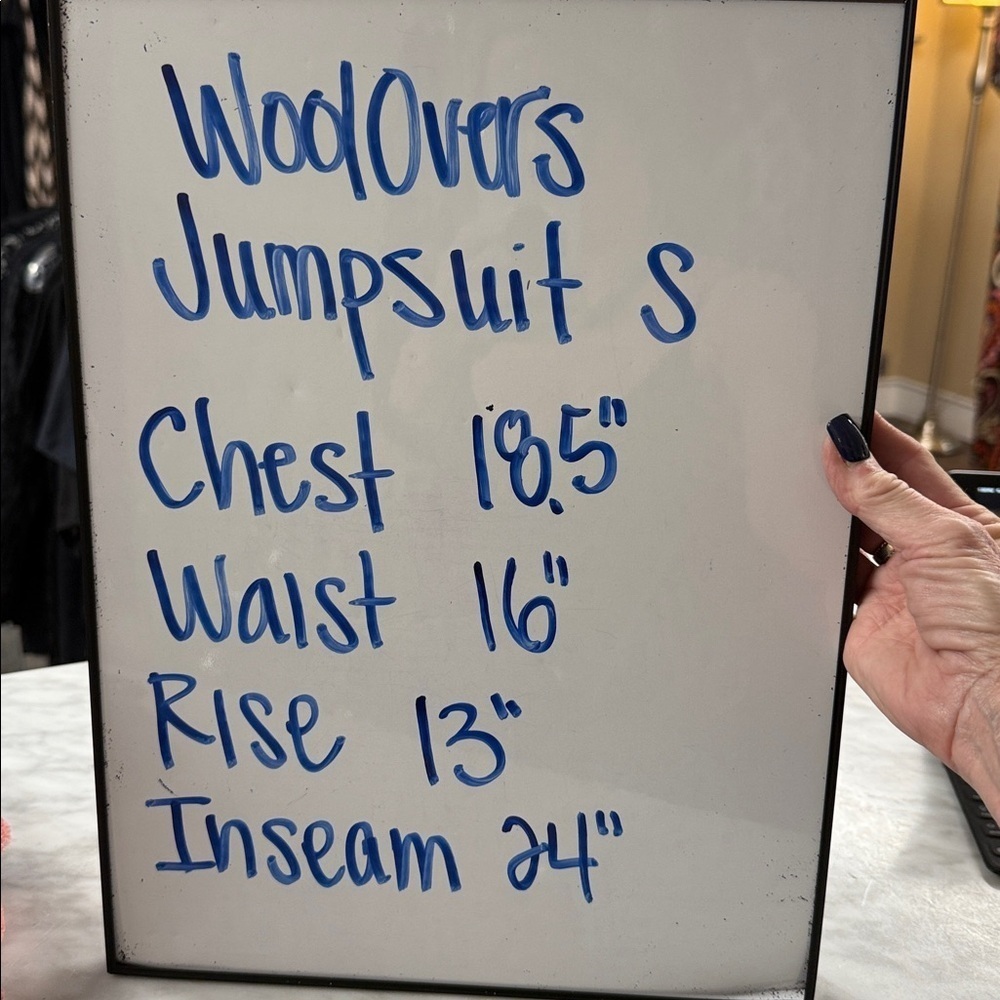 WoolOvers
Jumpsuit S
Chest 18.5"
Waist 16"
Rise 13"
Inseam 24"